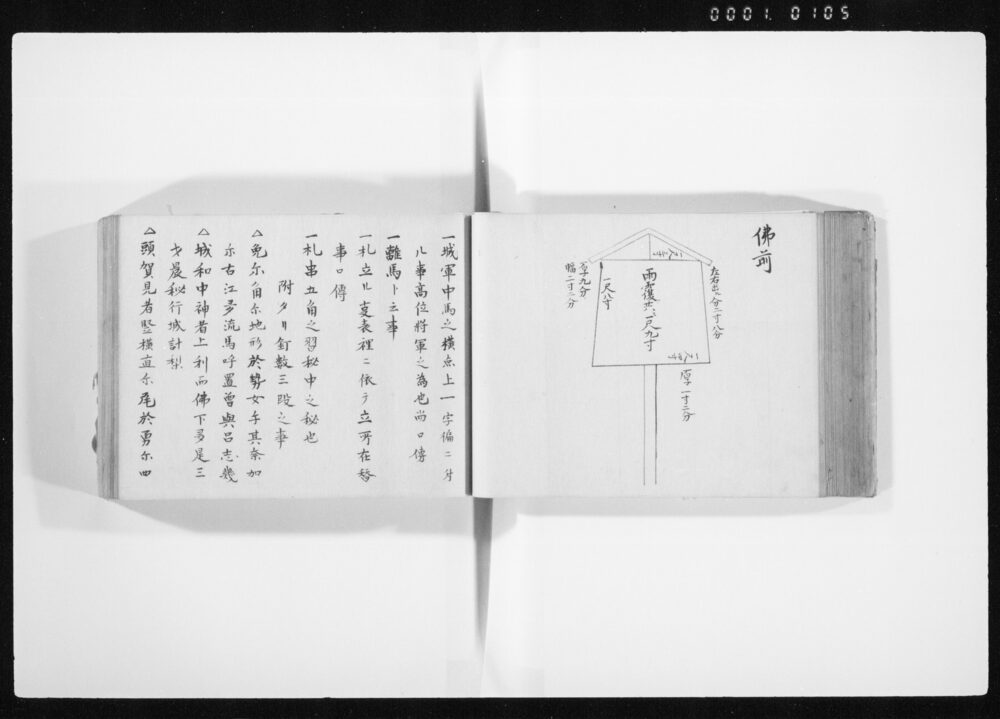 0001 0105
佛前
左右出八分二寸八分
雨覆共ニ一尺九寸
一尺八寸
厚サ九分
幅二寸二分
厚サ一寸二分
一城軍中馬之横点上一字徧ニ
ル事高位将軍之為也尚口傳
一離馬ト云事
一札立ル事表裡ニ依テ立所在
事口傳
一札串五角之習秘中之秘也
附タリ釘数三段之事
△兔尓角尓地形於勢女手其奈加
尓古江多流馬呼置曽與呂志幾
△城和中神者上利而佛下多足三
才晨秘行城計梨
△頭賀見者竪横直尓尾於勇尓四